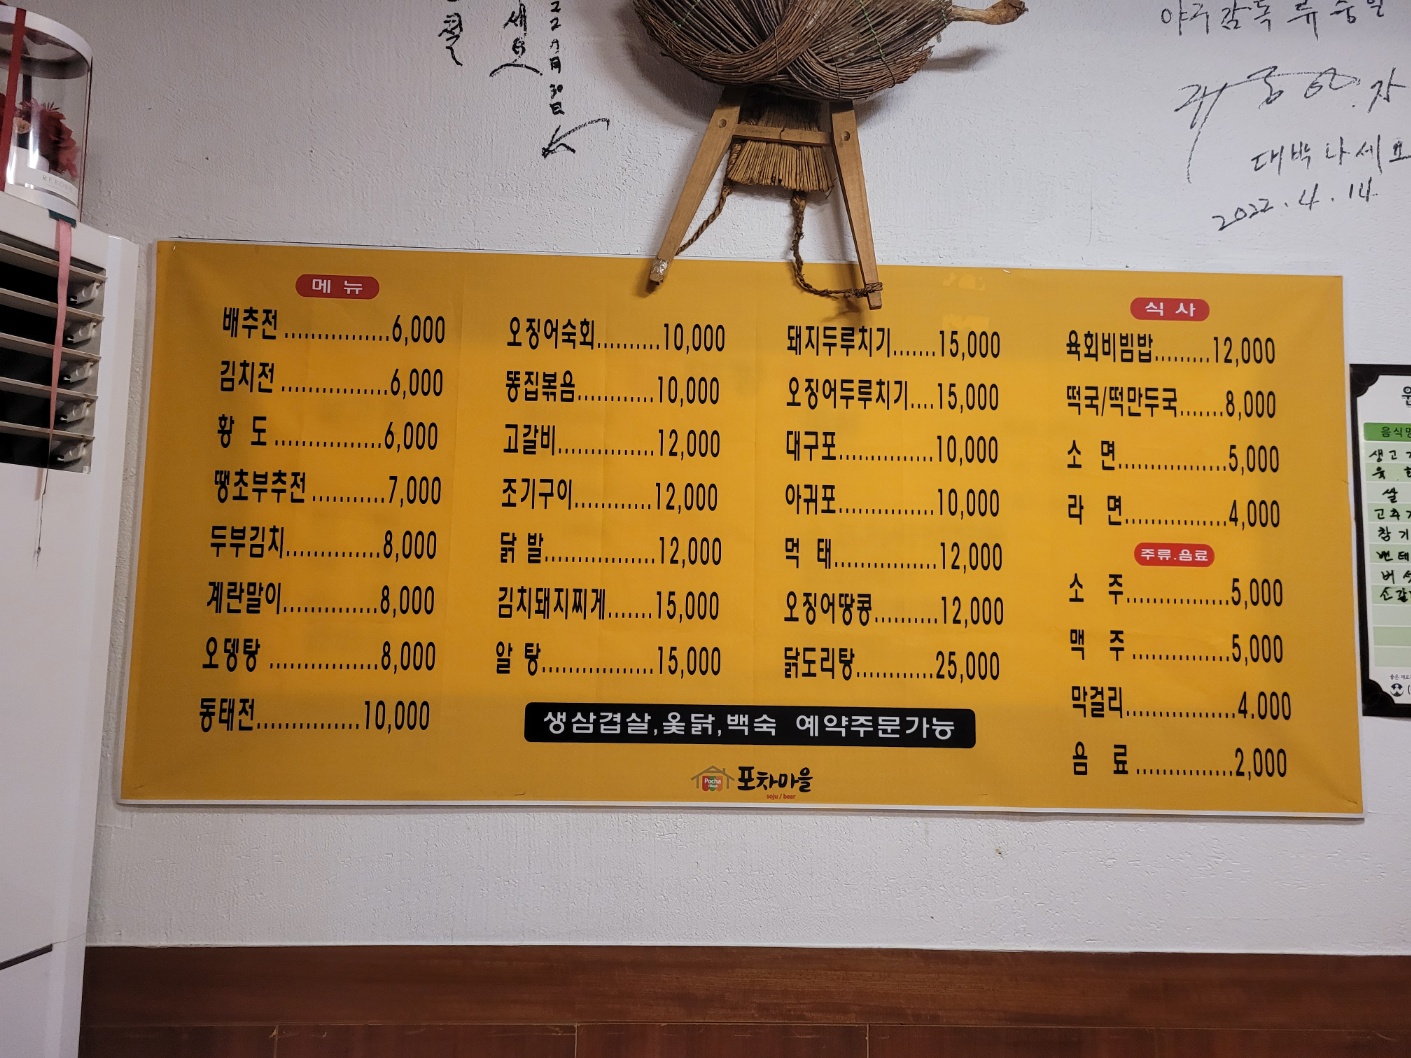 세요
야구감독 류중일
대박 나세요
2022.4.14
메 뉴
배추전 ..............6,000
김치전 ..............6,000
황 도 ..............6,000
땡초부추전 ..........7,000
두부김치.............8,000
계란말이.............8,000
오뎅탕 ..............8,000
동태전..............10,000
오징어숙회..........10,000
똥집볶음............10,000
고갈비..............12,000
조기구이............12,000
닭 발...............12,000
김치돼지찌게.......15,000
알 탕...............15,000
돼지두루치기.......15,000
오징어두루치기....15,000
대구포..............10,000
아귀포..............10,000
먹 태...............12,000
오징어땅콩..........12,000
닭도리탕............25,000
식 사
육회비빔밥.........12,000
떡국/떡만두국.......8,000
소 면................5,000
라 면...............4,000
주류.음료
소 주...............5,000
맥 주 ..............5,000
막걸리................4.000
음 료 ..............2,000
생삼겹살,옻닭,백숙 예약주문가능
Pocha
포차마을
soju / beer
원
음식명
생고기
쌀
고추가
참기
버섯